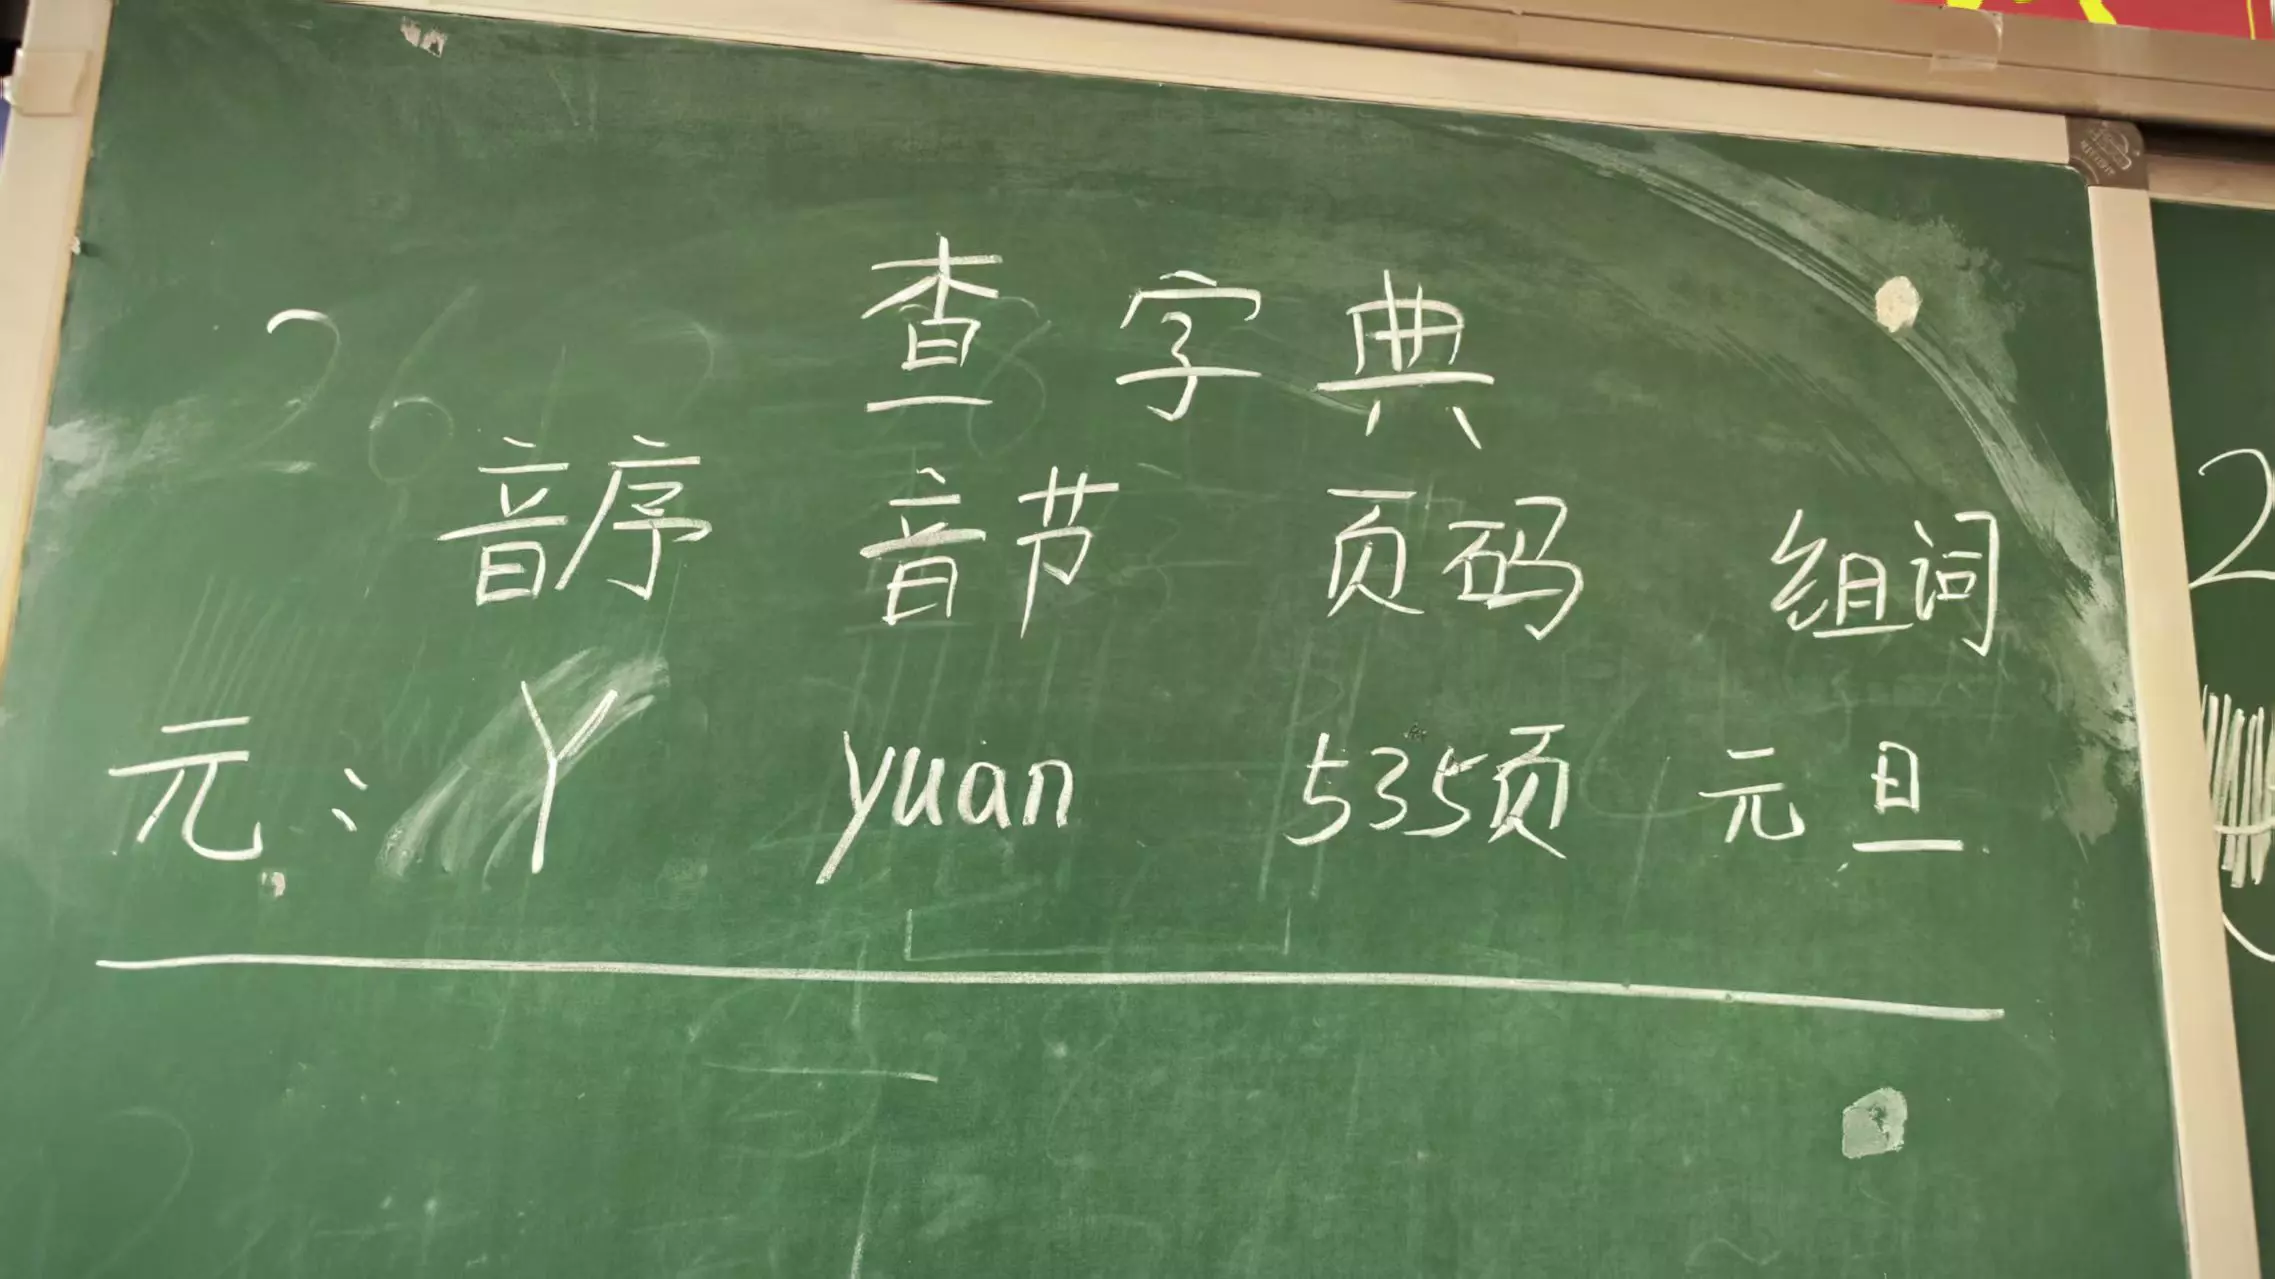 查字典
音序 音节 页码 组词
元: Y yuan 535页 元旦